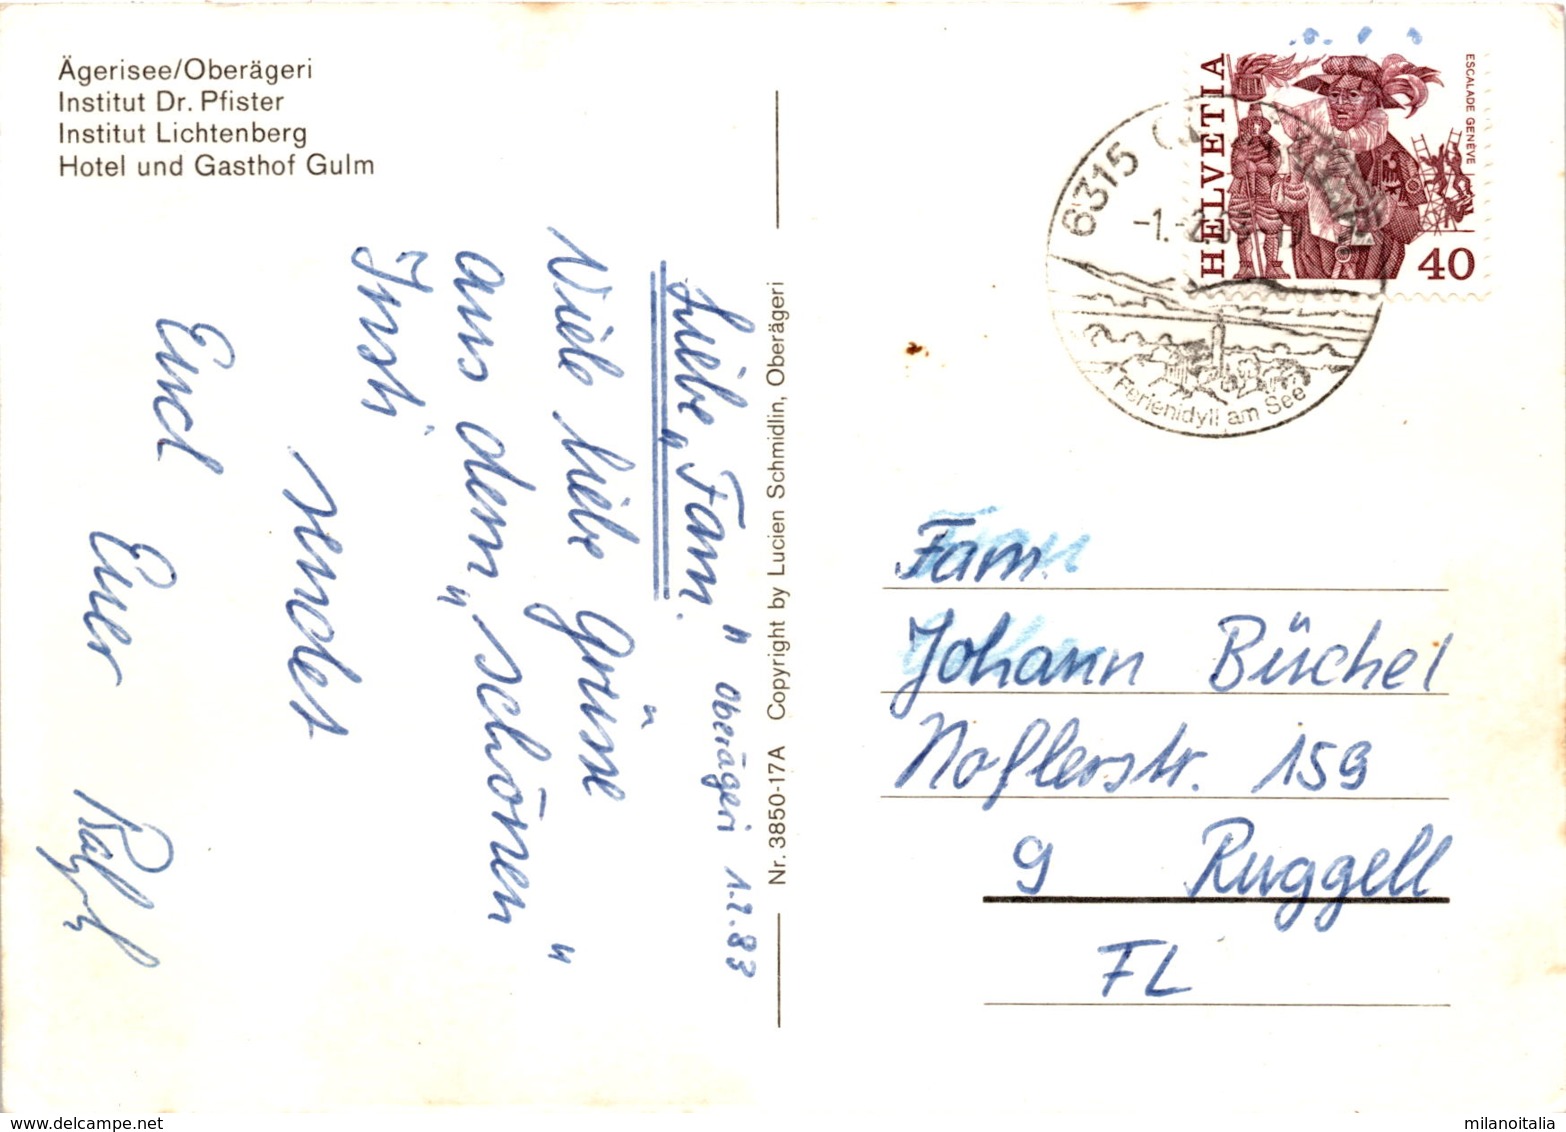 Ägerisee/Oberägeri
Institut Dr. Pfister
Institut Lichtenberg
Hotel und Gasthof Gulm
Oberägeri 1.2.83
Liebe „Fam."
Viele liebe Grüsse
aus dem „schönen"
Insti
sendet
Euch Euer Ralph
Nr. 3850-17A Copyright by Lucien Schmidlin, Oberägeri
HELVETIA
ESCALADE GENÈVE
40
6315
-1.-2.
Ferienidyll am See
Fam.
Johann Büchel
Noflerstr. 159
9 Ruggell
FL
milanoitalia